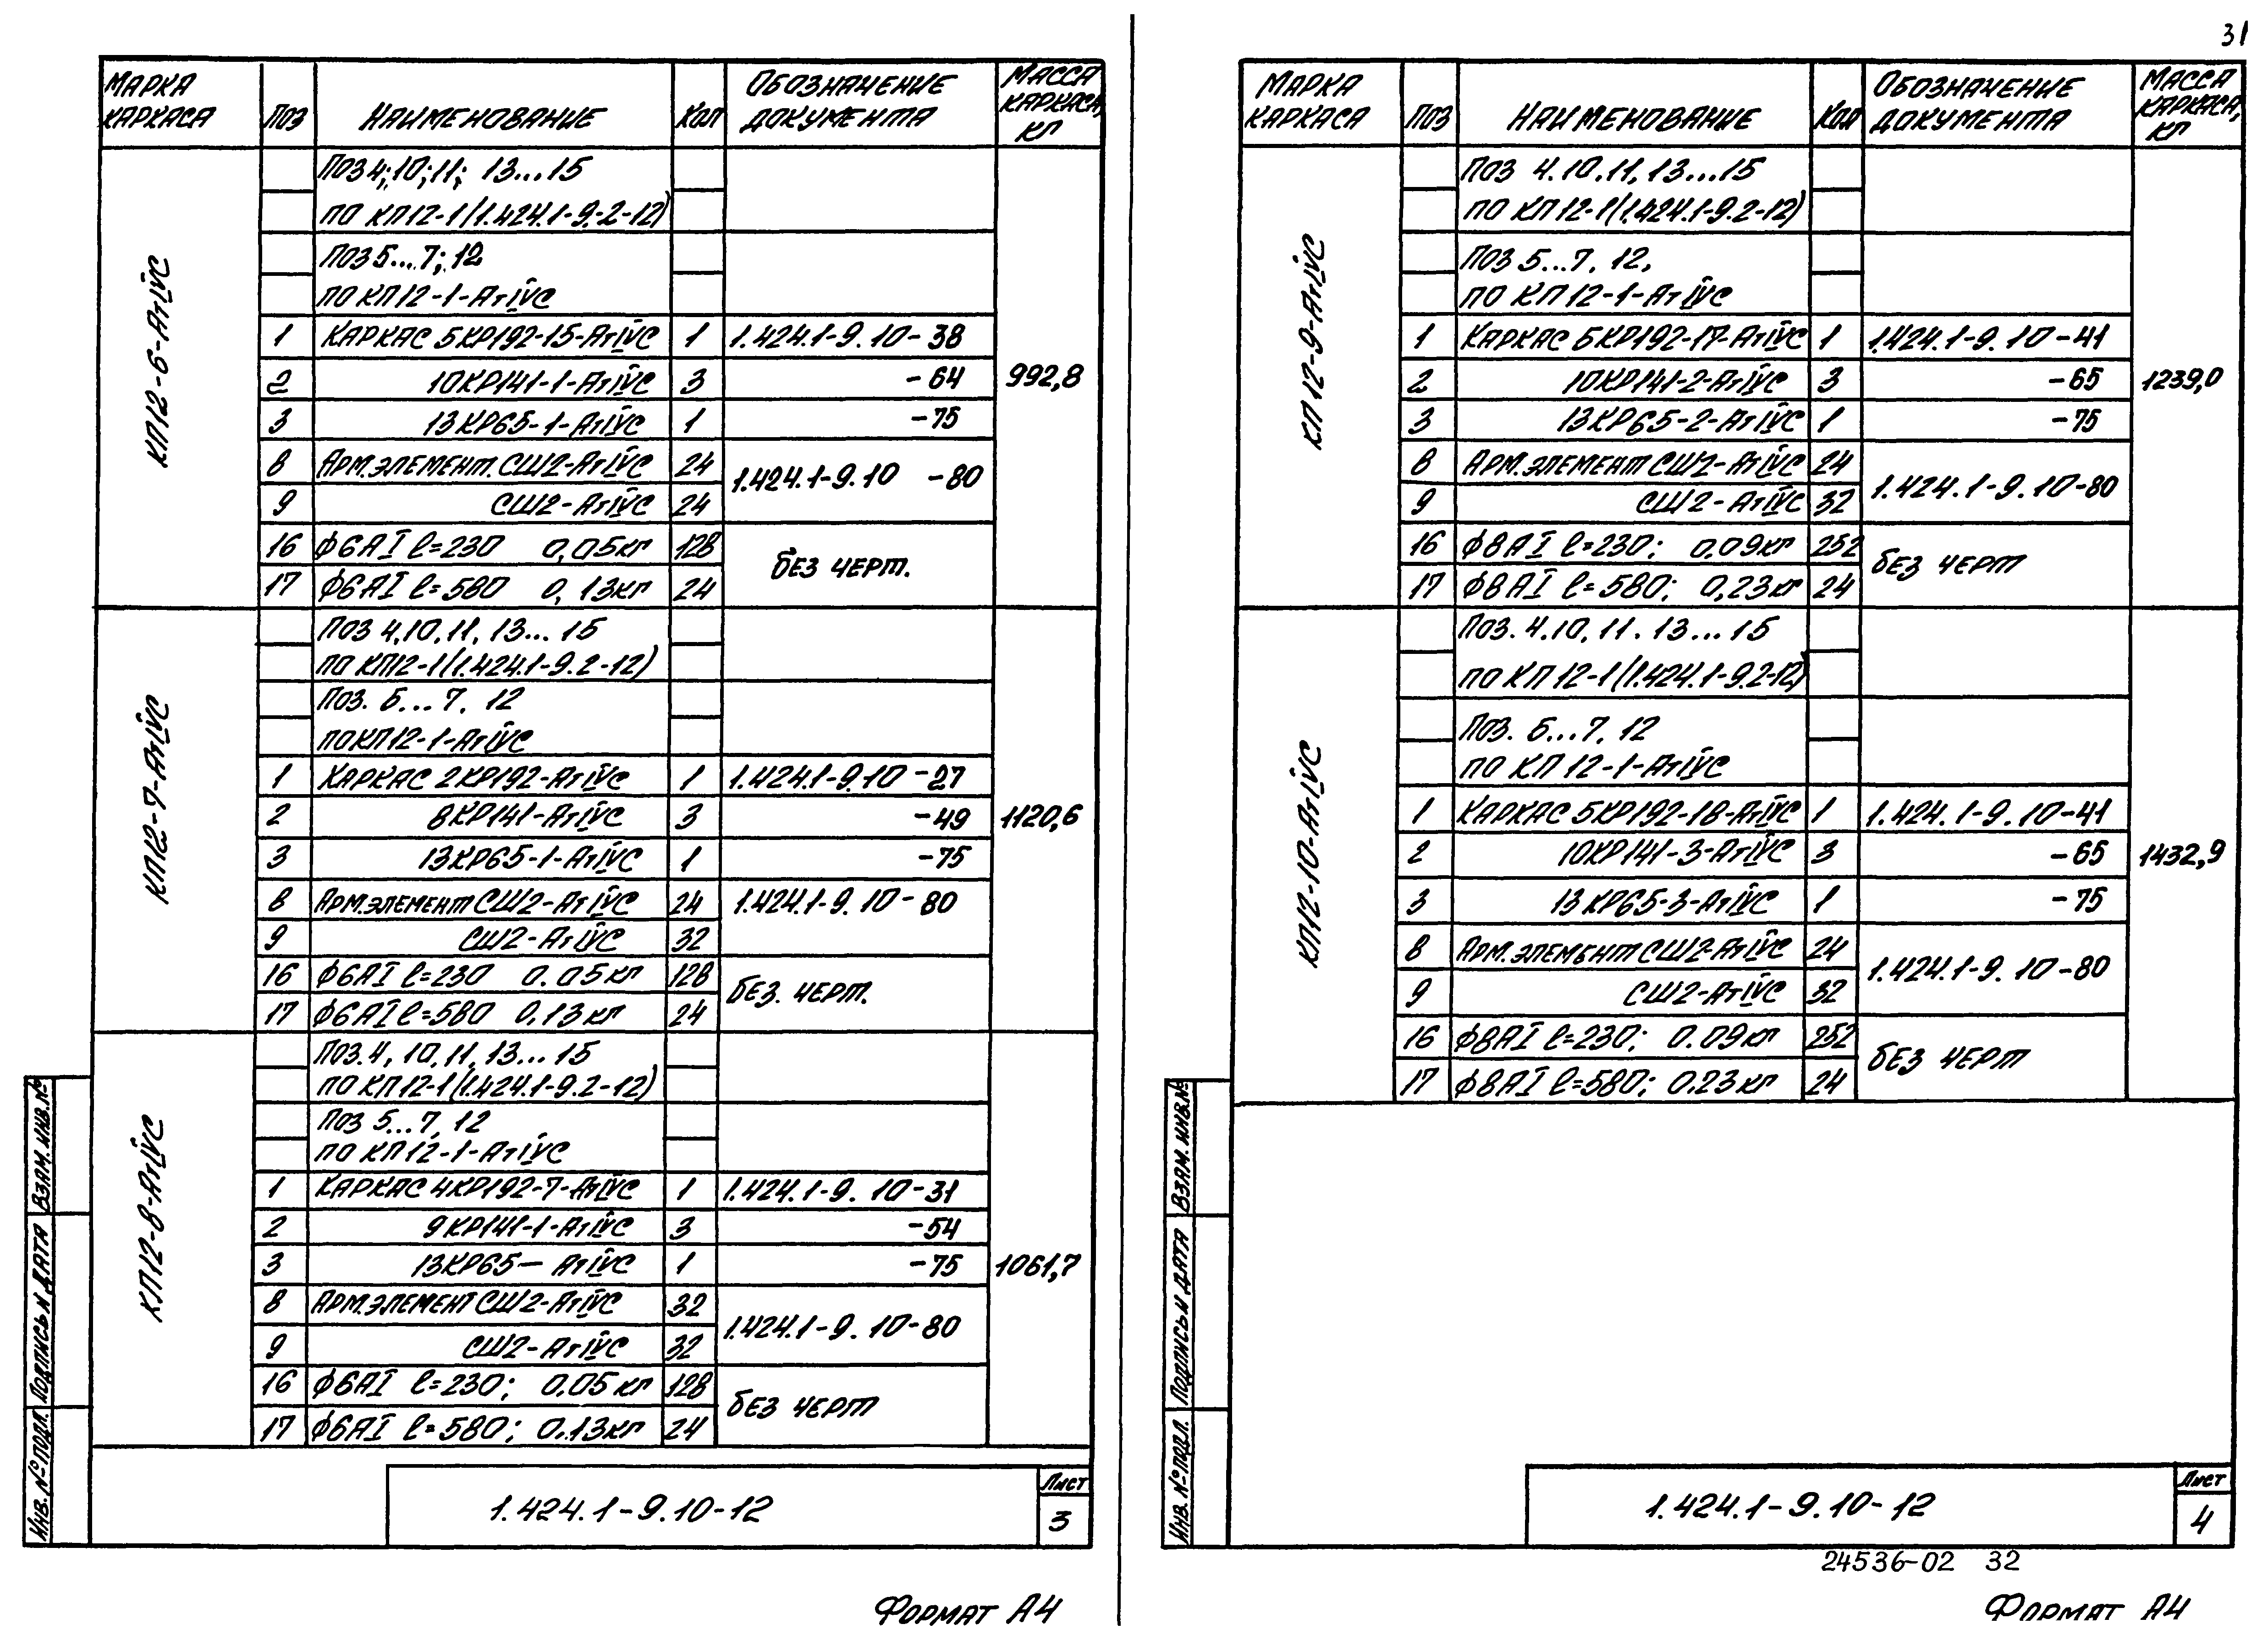 31
МАРКА КАРКАСА ПОЗ НАИМЕНОВАНИЕ КОЛ ОБОЗНАЧЕНИЕ ДОКУМЕНТА МАССА КАРКАСА, КГ
КП12-6-АтIVС
ПОЗ 4; 10; 11; 13...15
ПО КП12-1 (1.424.1-9.2-12)
ПОЗ 5...7; 12
ПО КП12-1-АтIVС
1 КАРКАС 5КР192-15-АтIVС 1 1.424.1-9.10-38
2 10КР141-1-АтIVС 3 -64 992,8
3 13КР65-1-АтIVС 1 -75
8 АРМ.ЭЛЕМЕНТ. СШ2-АтIVС 24 1.424.1-9.10 -80
9 СШ2-АтIVС 24
16 Ф6АI ℓ=230 0,05кг 128 БЕЗ ЧЕРТ.
17 Ф6АI ℓ=580 0,13кг 24
КП12-7-АтIVС
ПОЗ 4, 10, 11, 13... 15
ПО КП12-1 (1.424.1-9.2-12)
ПОЗ. 5...7, 12
ПО КП12-1-АтIVС
1 КАРКАС 2КР192-АтIVС 1 1.424.1-9.10-27
2 8КР141-АтIVС 3 -49 1120,6
3 13КР65-1-АтIVС 1 -75
8 АРМ.ЭЛЕМЕНТ СШ2-АтIVС 24 1.424.1-9.10-80
9 СШ2-АтIVС 32
16 Ф6АI ℓ=230 0.05кг 128 БЕЗ. ЧЕРТ.
17 Ф6АI ℓ=580 0.13кг 24
КП12-8-АтIVС
ПОЗ. 4, 10, 11, 13... 15
ПО КП12-1 (1.424.1-9.2-12)
ПОЗ 5...7, 12
ПО КП12-1-АтIVС
1 КАРКАС 4КР192-7-АтIVС 1 1.424.1-9.10-31
2 9КР141-1-АтIVС 3 -54
3 13КР65— АтIVС 1 -75 1061,7
8 АРМ.ЭЛЕМЕНТ СШ2-АтIVС 32 1.424.1-9.10-80
9 СШ2-АтIVС 32
16 Ф6АI ℓ=230; 0.05кг 128 БЕЗ ЧЕРТ
17 Ф6АI ℓ=580; 0.13кг 24
ИНВ. № ПОДЛ. ПОДПИСЬ И ДАТА ВЗАМ. ИНВ.№
1.424.1-9.10-12
ЛИСТ
3
ФОРМАТ А4
МАРКА КАРКАСА ПОЗ НАИМЕНОВАНИЕ КОЛ ОБОЗНАЧЕНИЕ ДОКУМЕНТА МАССА КАРКАСА, КГ
КП12-9-АтIVС
ПОЗ 4. 10. 11, 13...15
ПО КП12-1 (1.424.1-9.2-12)
ПОЗ 5...7, 12,
ПО КП12-1-АтIVС
1 КАРКАС 5КР192-17-АтIVС 1 1.424.1-9.10-41
2 10КР141-2-АтIVС 3 -65 1239,0
3 13КР65-2-АтIVС 1 -75
8 АРМ.ЭЛЕМЕНТ СШ2-АтIVС 24 1.424.1-9.10-80
9 СШ2-АтIVС 32
16 Ф8АI ℓ=230; 0.09кг 252 БЕЗ ЧЕРТ
17 Ф8АI ℓ=580; 0,23кг 24
КП12-10-АтIVС
ПОЗ. 4.10, 11. 13...15
ПО КП12-1 (1.424.1-9.2-12)
ПОЗ. 5...7, 12
ПО КП12-1-АтIVС
1 КАРКАС 5КР192-18-АтIVС 1 1.424.1-9.10-41
2 10КР141-3-АтIVС 3 -65 1432,9
3 13КР65-3-АтIVС 1 -75
8 АРМ.ЭЛЕМЕНТ СШ2-АтIVС 24 1.424.1-9.10-80
9 СШ2-АтIVС 32
16 Ф8АI ℓ=230; 0.09кг 252 БЕЗ ЧЕРТ
17 Ф8АI ℓ=580; 0.23кг 24
ИНВ. № ПОДЛ. ПОДПИСЬ И ДАТА ВЗАМ. ИНВ.№
1.424.1-9.10-12
ЛИСТ
4
24536-02 32
ФОРМАТ А4